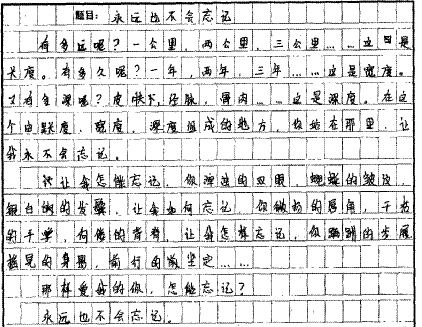 题目：永远也不会忘记
有多远呢？一公里，两公里，三公里……这是
长度。有多久呢？一年，两年，三年……这是宽度。
又有多深呢？皮肤，经脉，骨肉……这是深度。在这
个由长度，宽度，深度组成的地方，你站在那里，让
我永不会忘记。
这让我怎能忘记，你深邃的双眼，蜿蜒的皱纹
银白的发鬓，让我如何忘记，你微扬的唇角，干枯
的手掌，佝偻的背脊，让我怎样忘记，你蹒跚的步履
摇晃的身影，前行的坚定……
那样爱我的你，怎能忘记？
永远也不会忘记。